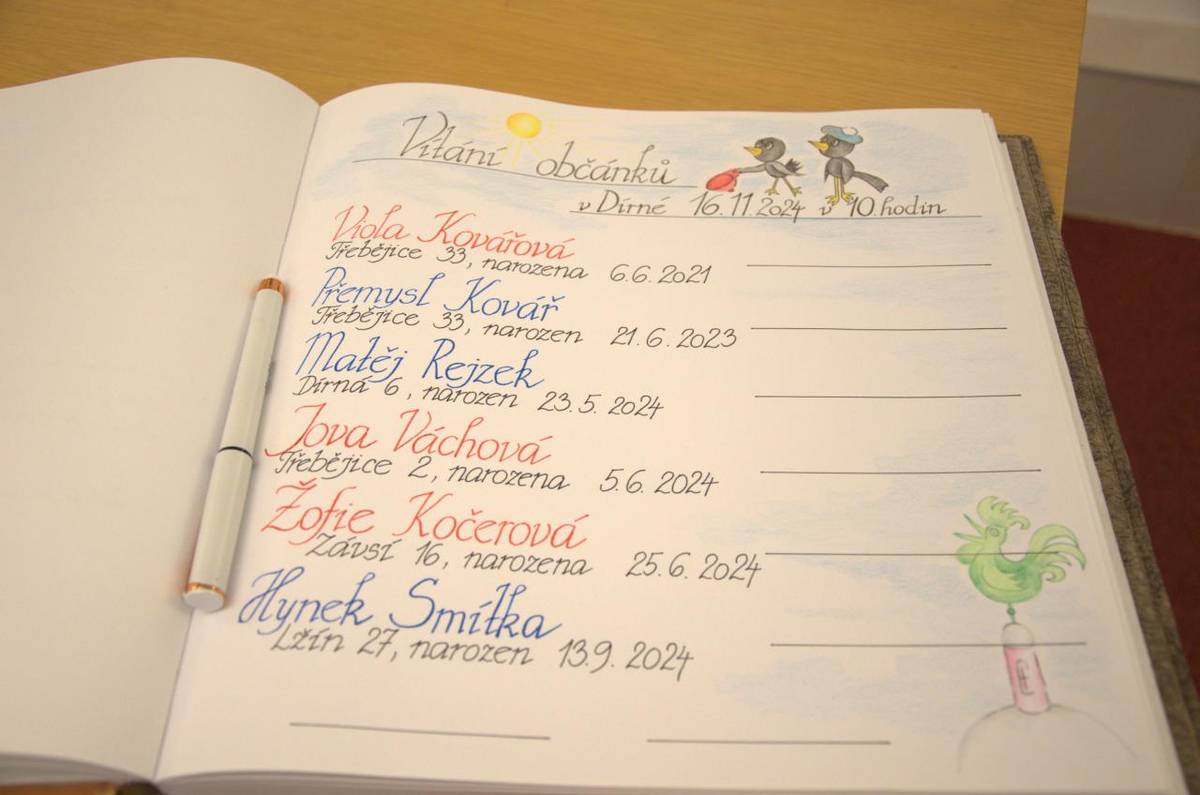 Vítání občánků
v Dírné 16.11.2024 v 10.hodin
Viola Kovářová
Třebějice 33, narozena 6.6.2021
Přemysl Kovář
Třebějice 33, narozen 21.6.2023
Matěj Rejzek
Dírná 6, narozen 23.5.2024
Jova Váchová
Třebějice 2, narozena 5.6.2024
Žofie Kočerová
Závsí 16, narozena 25.6.2024
Hynek Smítka
Lžín 27, narozen 13.9.2024